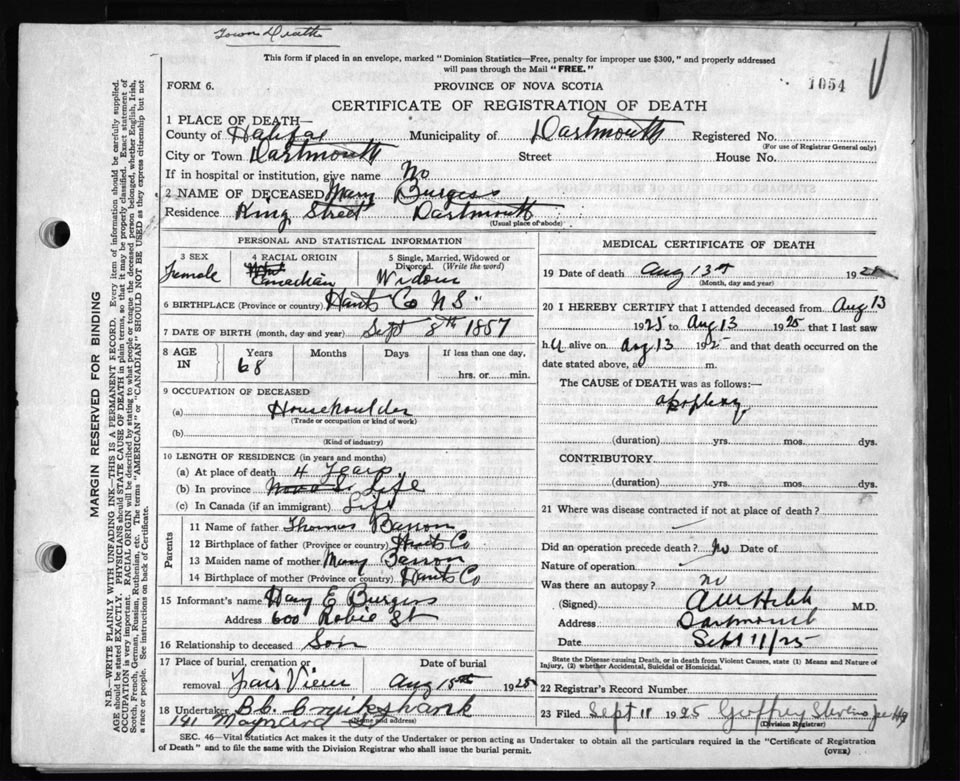 Town Death
This form if placed in an envelope, marked "Dominion Statistics—Free, penalty for improper use $300," and properly addressed
will pass through the Mail "FREE."
1054
FORM 6.
PROVINCE OF NOVA SCOTIA
CERTIFICATE OF REGISTRATION OF DEATH
1 PLACE OF DEATH—
County of Halifax Municipality of Dartmouth Registered No.
(For use of Registrar General only)
City or Town Dartmouth Street House No.
If in hospital or institution, give name No
2 NAME OF DECEASED Mary Burgess
Residence King Street Dartmouth
(Usual place of abode)
MARGIN RESERVED FOR BINDING
N.B.—WRITE PLAINLY WITH UNFADING INK—THIS IS A PERMANENT RECORD. Every item of information should be carefully supplied.
AGE should be stated EXACTLY. PHYSICIANS should STATE CAUSE OF DEATH in plain terms, so that it may be properly classified. Exact statement of
OCCUPATION is very important. RACIAL ORIGIN will be described by stating to what people or tongue the deceased person belonged, whether English, Irish,
Scotch, French, German, Russian, Ruthenian, etc. The terms "AMERICAN" or "CANADIAN" SHOULD NOT BE USED as they express citizenship but not
a race or people. See instructions on back of Certificate.
PERSONAL AND STATISTICAL INFORMATION
3 SEX
Female
4 RACIAL ORIGIN
Canadian
5 Single, Married, Widowed or
Divorced. (Write the word)
Widow
6 BIRTHPLACE (Province or country) Hants Co N S
7 DATE OF BIRTH (month, day and year) Sept 8th 1857
8 AGE
IN
Years Months Days If less than one day,
68
hrs. or min.
9 OCCUPATION OF DECEASED
(a) Househoulder
(Trade or occupation or kind of work)
(b)
(Kind of industry)
10 LENGTH OF RESIDENCE (in years and months)
(a) At place of death 4 Years
(b) In province Life
(c) In Canada (if an immigrant) Life
Parents
11 Name of father Thomas
12 Birthplace of father (Province or country) Hants Co
13 Maiden name of mother Mary
14 Birthplace of mother (Province or country) Hants Co
15 Informant's name E Burgess
Address 600 Robie St
16 Relationship to deceased Son
17 Place of burial, cremation or Date of burial
removal View Aug 15th 1925
18 Undertaker Cruikshank
(Name and address)
191 Maynard St
MEDICAL CERTIFICATE OF DEATH
19 Date of death Aug 13th 1925
(Month, day and year)
20 I HEREBY CERTIFY that I attended deceased from Aug 13
1925 to Aug 13 1925 that I last saw
h alive on Aug 13 1925 and that death occurred on the
date stated above, at m.
The CAUSE of DEATH was as follows:—
apoplexy
(duration) yrs. mos. dys.
CONTRIBUTORY
(duration) yrs. mos. dys.
21 Where was disease contracted if not at place of death?
Did an operation precede death? No Date of
Nature of operation
Was there an autopsy? no
(Signed) M.D.
Address Dartmouth
Date Sept 11/25
State the Disease causing Death, or in death from Violent Causes, state (1) Means and Nature of
Injury, (2) whether Accidental, Suicidal or Homicidal.
22 Registrar's Record Number
23 Filed Sept 11 1925 Geoffrey Stevens
(Division Registrar)
SEC. 46—Vital Statistics Act makes it the duty of the Undertaker or person acting as Undertaker to obtain all the particulars required in the "Certificate of Registration
of Death" and to file the same with the Division Registrar who shall issue the burial permit.
(OVER)